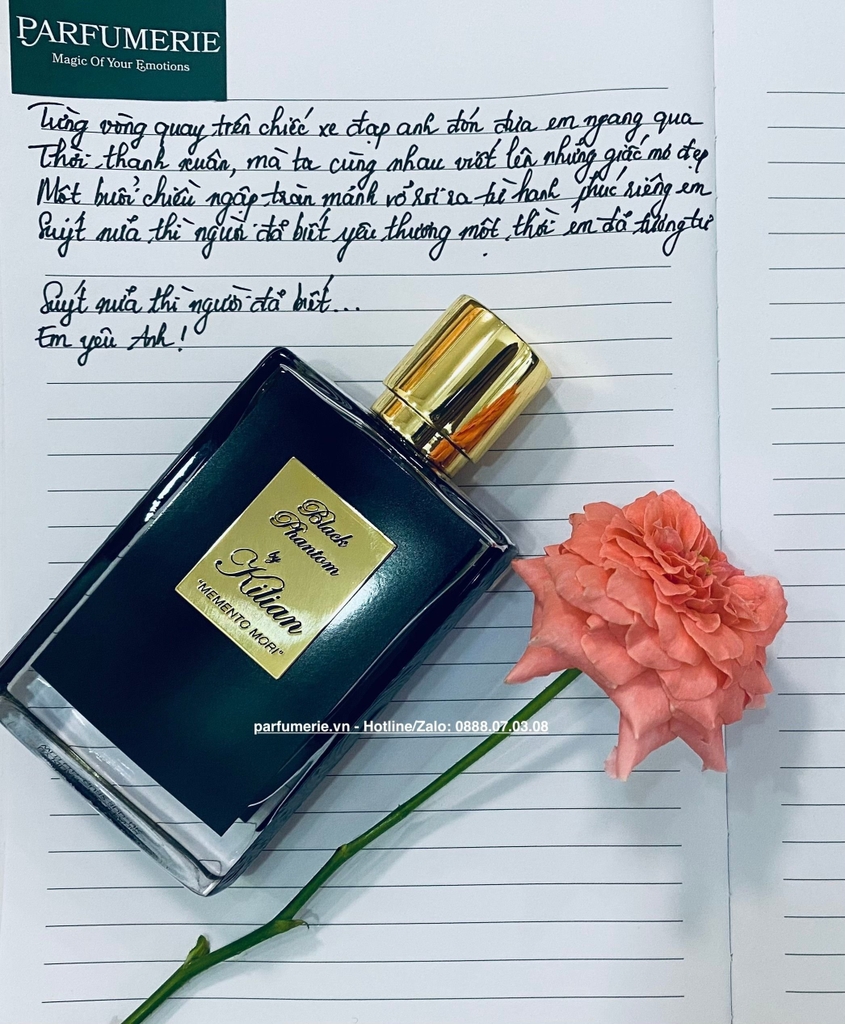 PARFUMERIE
Magic Of Your Emotions
Từng vòng quay trên chiếc xe đạp anh đón đưa em ngang qua
Thời thanh xuân, mà ta cùng nhau viết lên những giấc mơ đẹp
Một buổi chiều ngập tràn mảnh vỡ rơi ra từ hạnh phúc riêng em
Suýt nữa thì người đã biết yêu thương một thời em đã tương tư
Suýt nữa thì người đã biết...
Em yêu Anh!
Black
Phantom
by
Kilian
"MEMENTO MORI"
parfumerie.vn - Hotline/Zalo: 0888.07.03.08